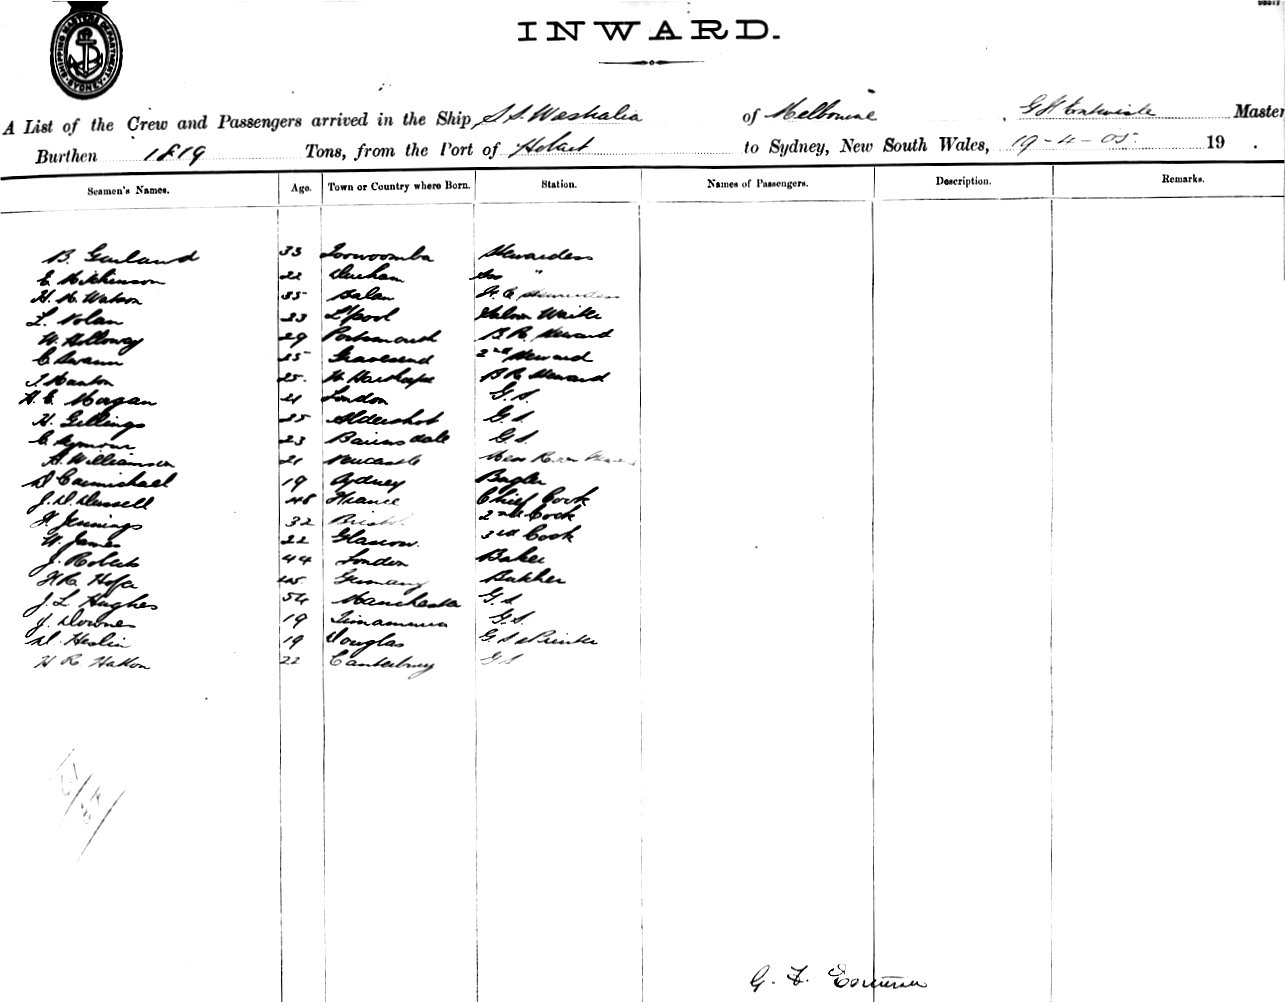 SHIPPING MASTERS DEPARTMENT SYDNEY
INWARD.
A List of the Crew and Passengers arrived in the Ship, S.S. Westralia of Melbourne Master
Burthen 1819 Tons, from the Port of Hobart to Sydney, New South Wales, 19-4-05 19 .
Seamen's Names. Age. Town or Country where Born. Station. Names of Passengers. Description. Remarks.
B. Garland 33 Toowoomba Stewardess
E. Hitchinson 22 Durham "
H. H. Watson 35 Balan
L. Nolan 33 L'pool Saloon Waiter
W. Holloway 29 Portsmouth B.R. Steward
C. Swann 25 Gravesend 2nd Steward
J Hanlon 25. B R Steward
A. E. Morgan 21 London G.S.
H. Gellings 25 Aldershot G.S.
C. Seymour 23 Bairnsdale G.S.
A. Williamson 21 Newcastle Mess Room
D Carmichael 19 Sydney Bugler
J. D. Dussell 48 France Chief Cook
H. Jennings 32 Bristol 2nd Cook
W. James 22 Glasgow. 3rd Cook
J. Roberts 44 London Baker
H R. Hofa 45 Germany Butcher
J. L Hughes 54 Manchester G.S.
J. Downes 19 G.S.
D. Heslin 19 Douglas G S & Printer
H R Hatton 22 Canterbury G S
G. F.